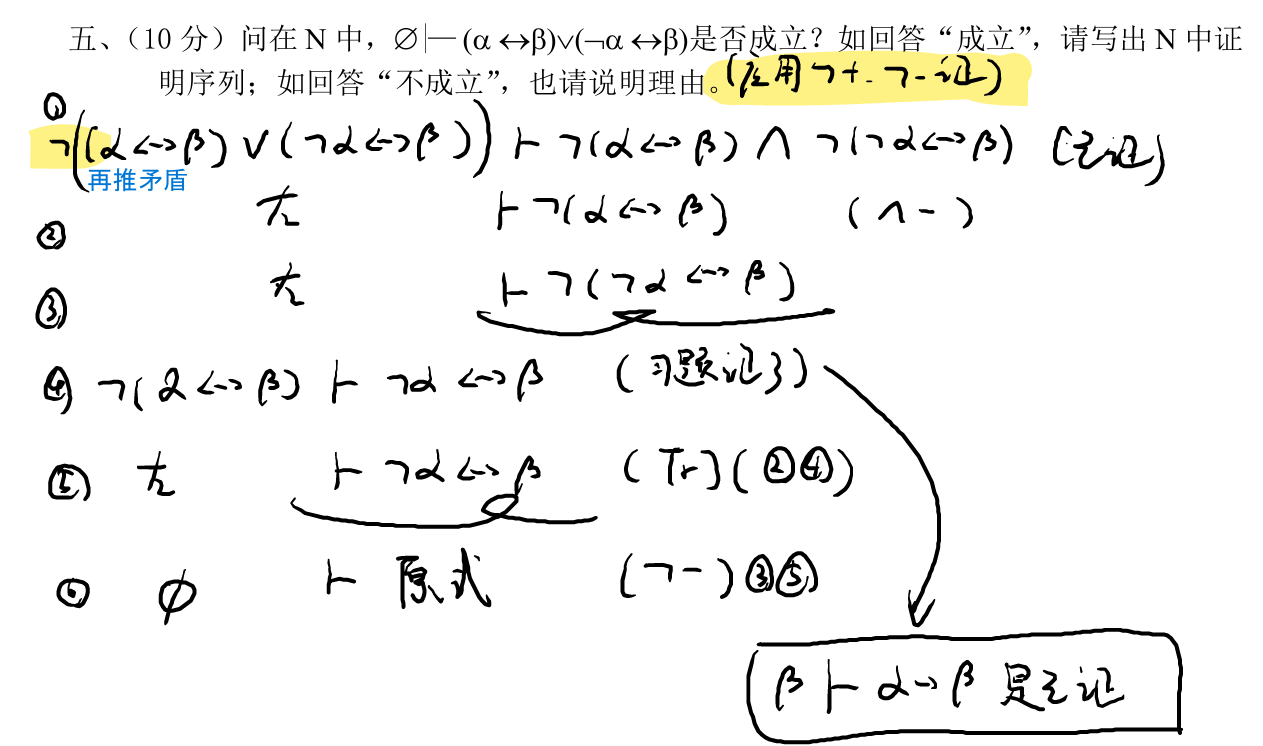 五、（10 分）问在 N 中，∅├─ (α ↔β)∨(¬α ↔β)是否成立？如回答“成立”，请写出 N 中证
明序列；如回答“不成立”，也请说明理由。(应用¬+.¬-证)
① ¬((α↔β)∨(¬α↔β)) ⊢ ¬(α↔β) ∧ ¬(¬α↔β) [已证]
再推矛盾
② 左 ⊢ ¬(α↔β) (∧-)
③ 左 ⊢ ¬(¬α↔β)
④ ¬(α↔β) ⊢ ¬α↔β (习题证3)
⑤ 左 ⊢ ¬α↔β (Tr)(②④)
⑥ ϕ ⊢ 原式 (¬-)③⑤
β ⊢ α→β 是已证